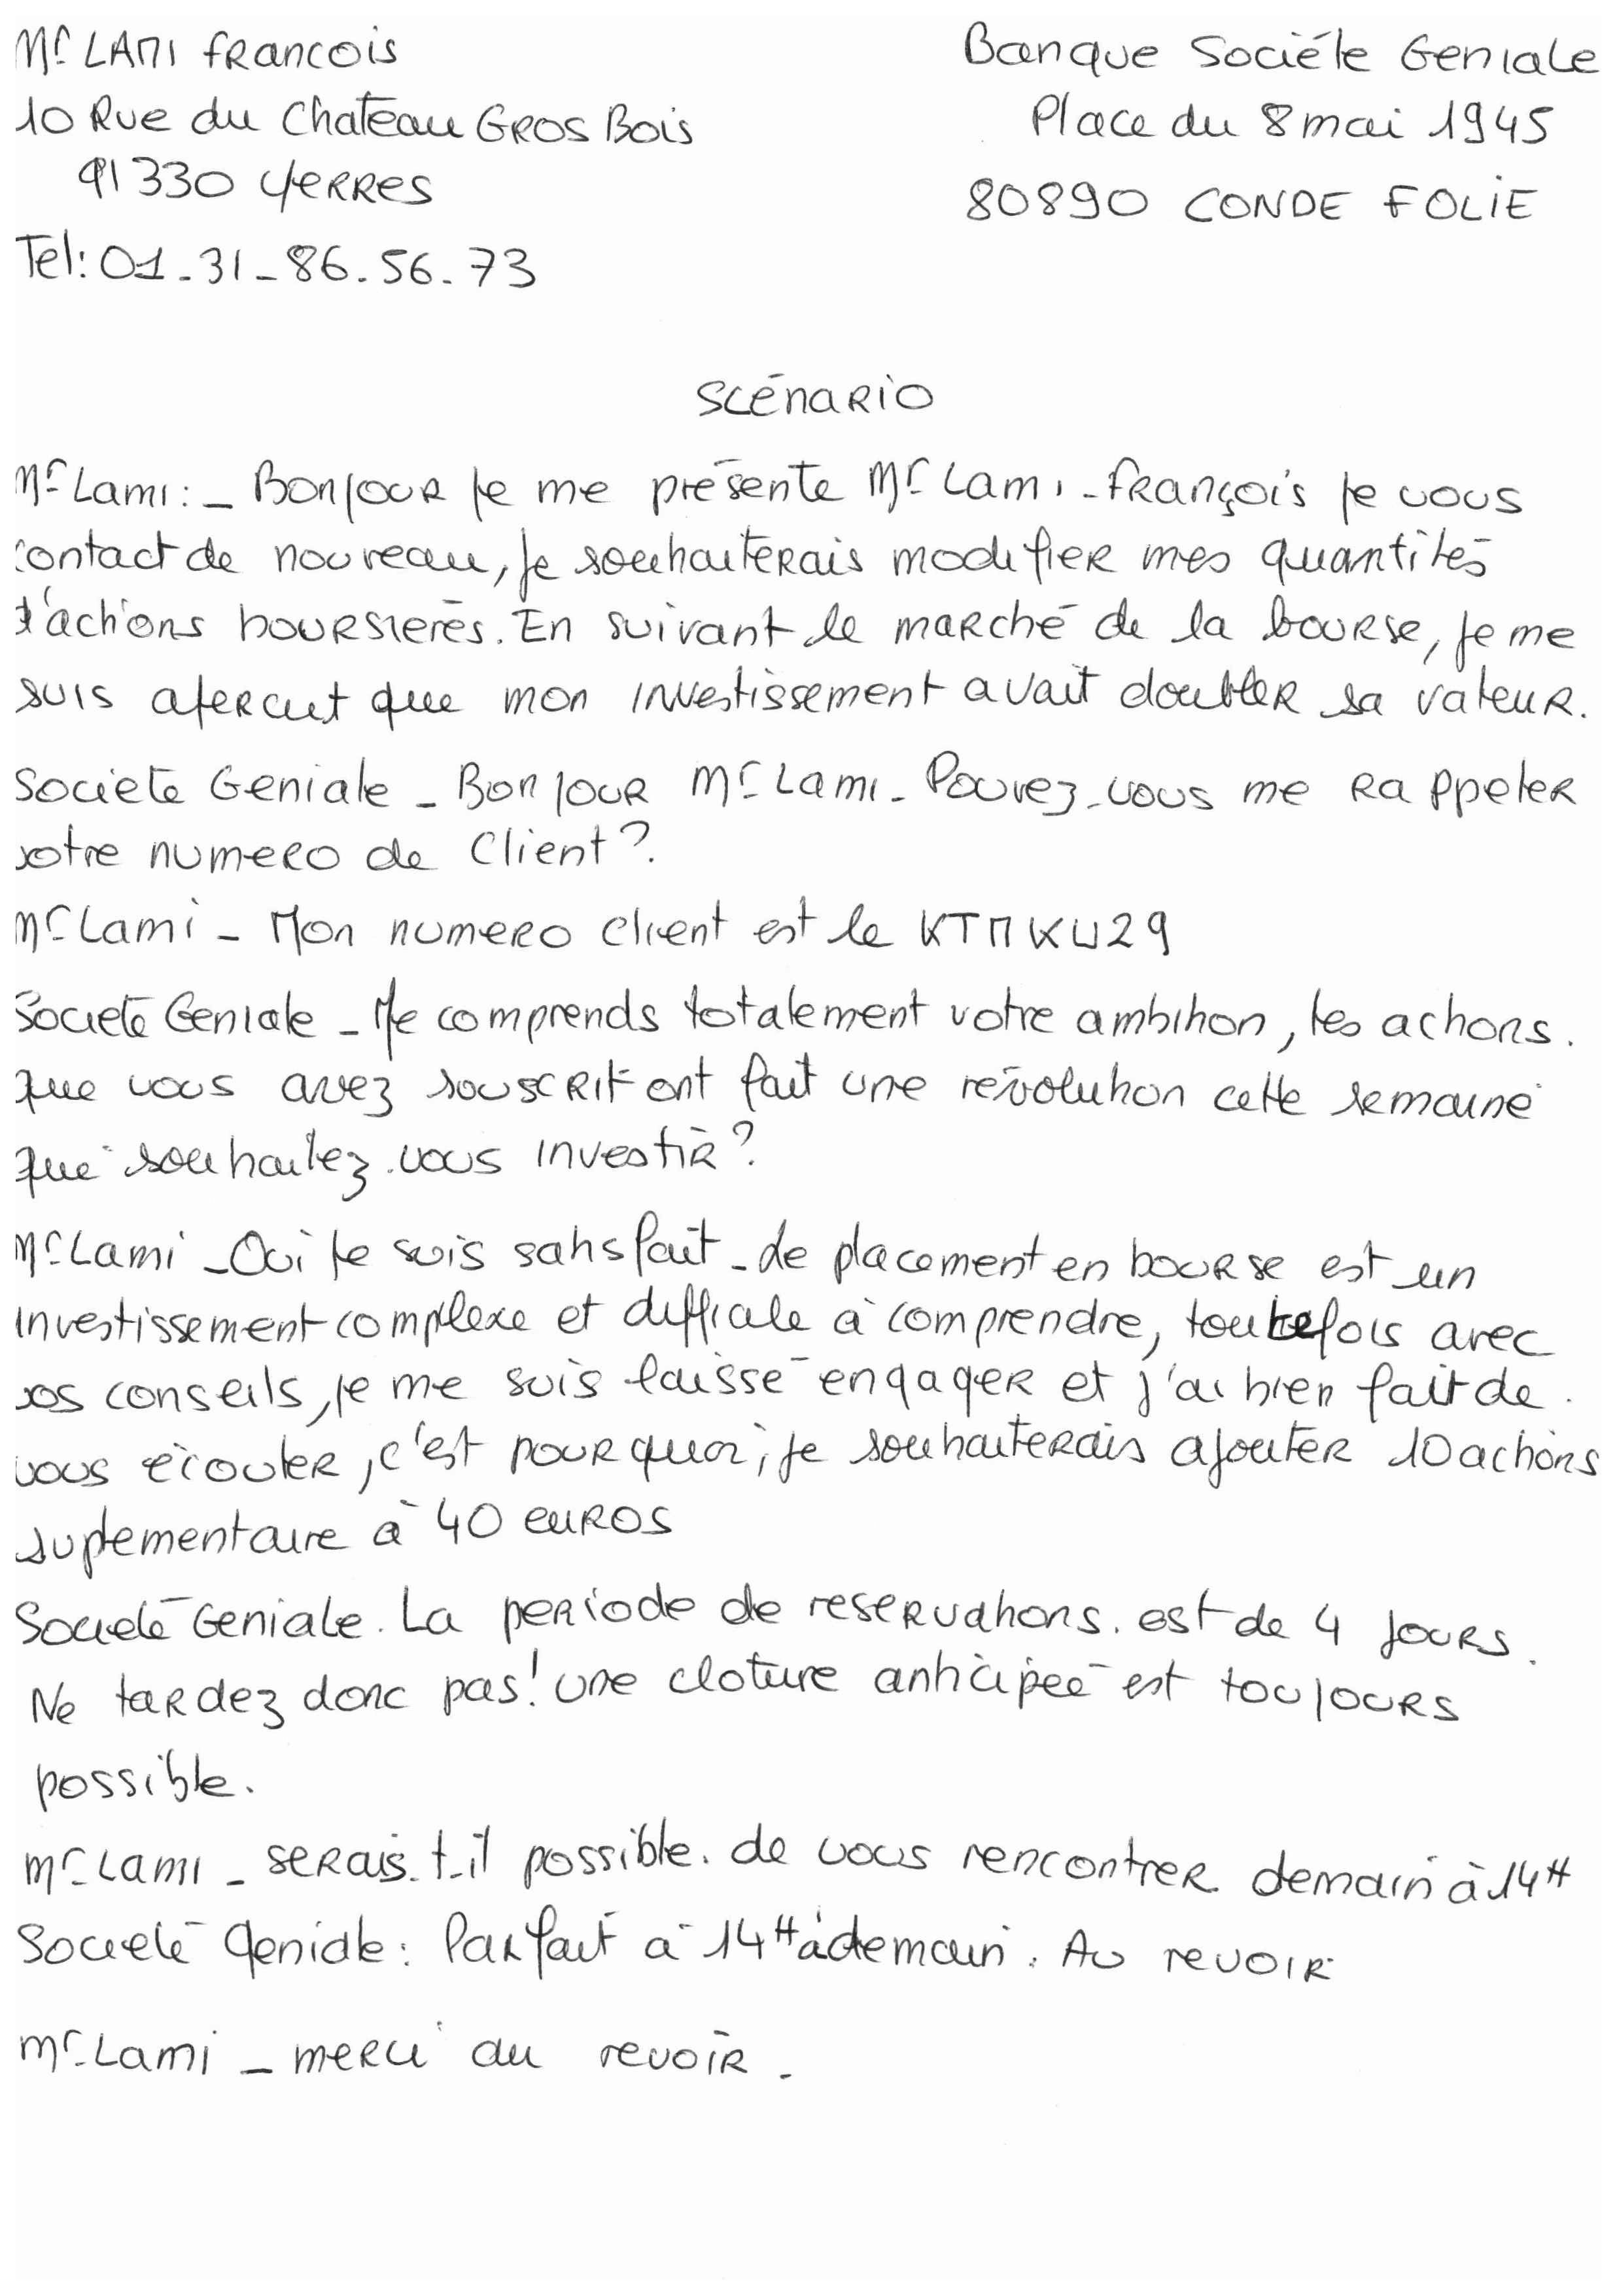 Mr LAMI francois
10 Rue du Chateau GROS BOIS
91330 YERRES
Tel: 01-31-86.56.73
Banque Société Geniale
Place du 8 mai 1945
80890 CONDE FOLIE
SCÉNARIO
Mr Lami: - Bonjour je me présente Mr Lami - François je vous
contact de nouveau, je souhaiterais modifier mes quantités
d'actions boursierès. En suivant le marché de la bourse, je me
suis apercut que mon investissement avait doubler sa valeur.
Societe Geniale - Bonjour Mr Lami. Pouvez-vous me rappeler
votre numero de Client?
Mr Lami - Mon numero client est le KTMKW29
Société Geniale - Je comprends totalement votre ambition, les actions.
que vous avez souscrit ont fait une révolution cette semaine
que souhaitez-vous investir?
Mr Lami - Oui je suis satisfait - de placement en bourse est un
investissement complexe et difficile à comprendre, toutefois avec
vos conseils, je me suis laissé engager et j'ai bien fait de.
vous écouter, c'est pourquoi, je souhaiterais ajouter 10 actions
suplementaire à 40 euros
Societé Geniale. La periode de reservations. est de 4 jours.
Ne tardez donc pas! une cloture anticipée est toujours
possible.
Mr Lami - serais-t-il possible. de vous rencontrer demain à 14H
Societé Geniale: Parfait à 14H à demain. Au revoir
Mr Lami - merci au revoir.